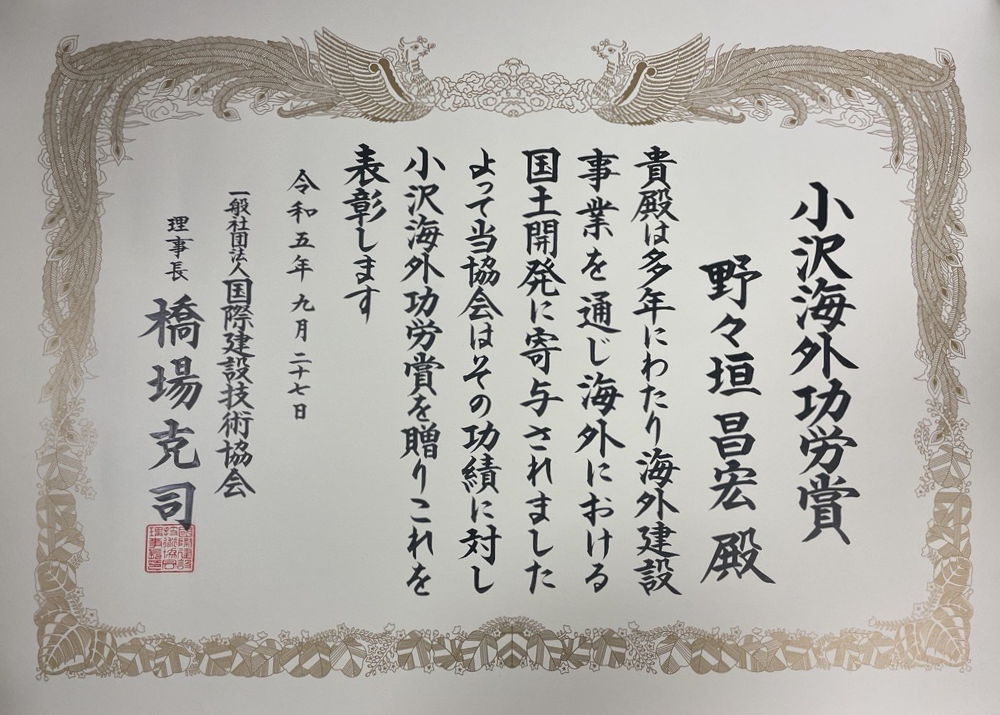 小沢海外功労賞
野々垣昌宏 殿
貴殿は多年にわたり海外建設
事業を通じ海外における
国土開発に寄与されました
よって当協会はその功績に対し
小沢海外功労賞を贈りこれを
表彰します
令和五年 九月 二十七日
一般社団法人 国際建設技術協会
理事長 橋場克司